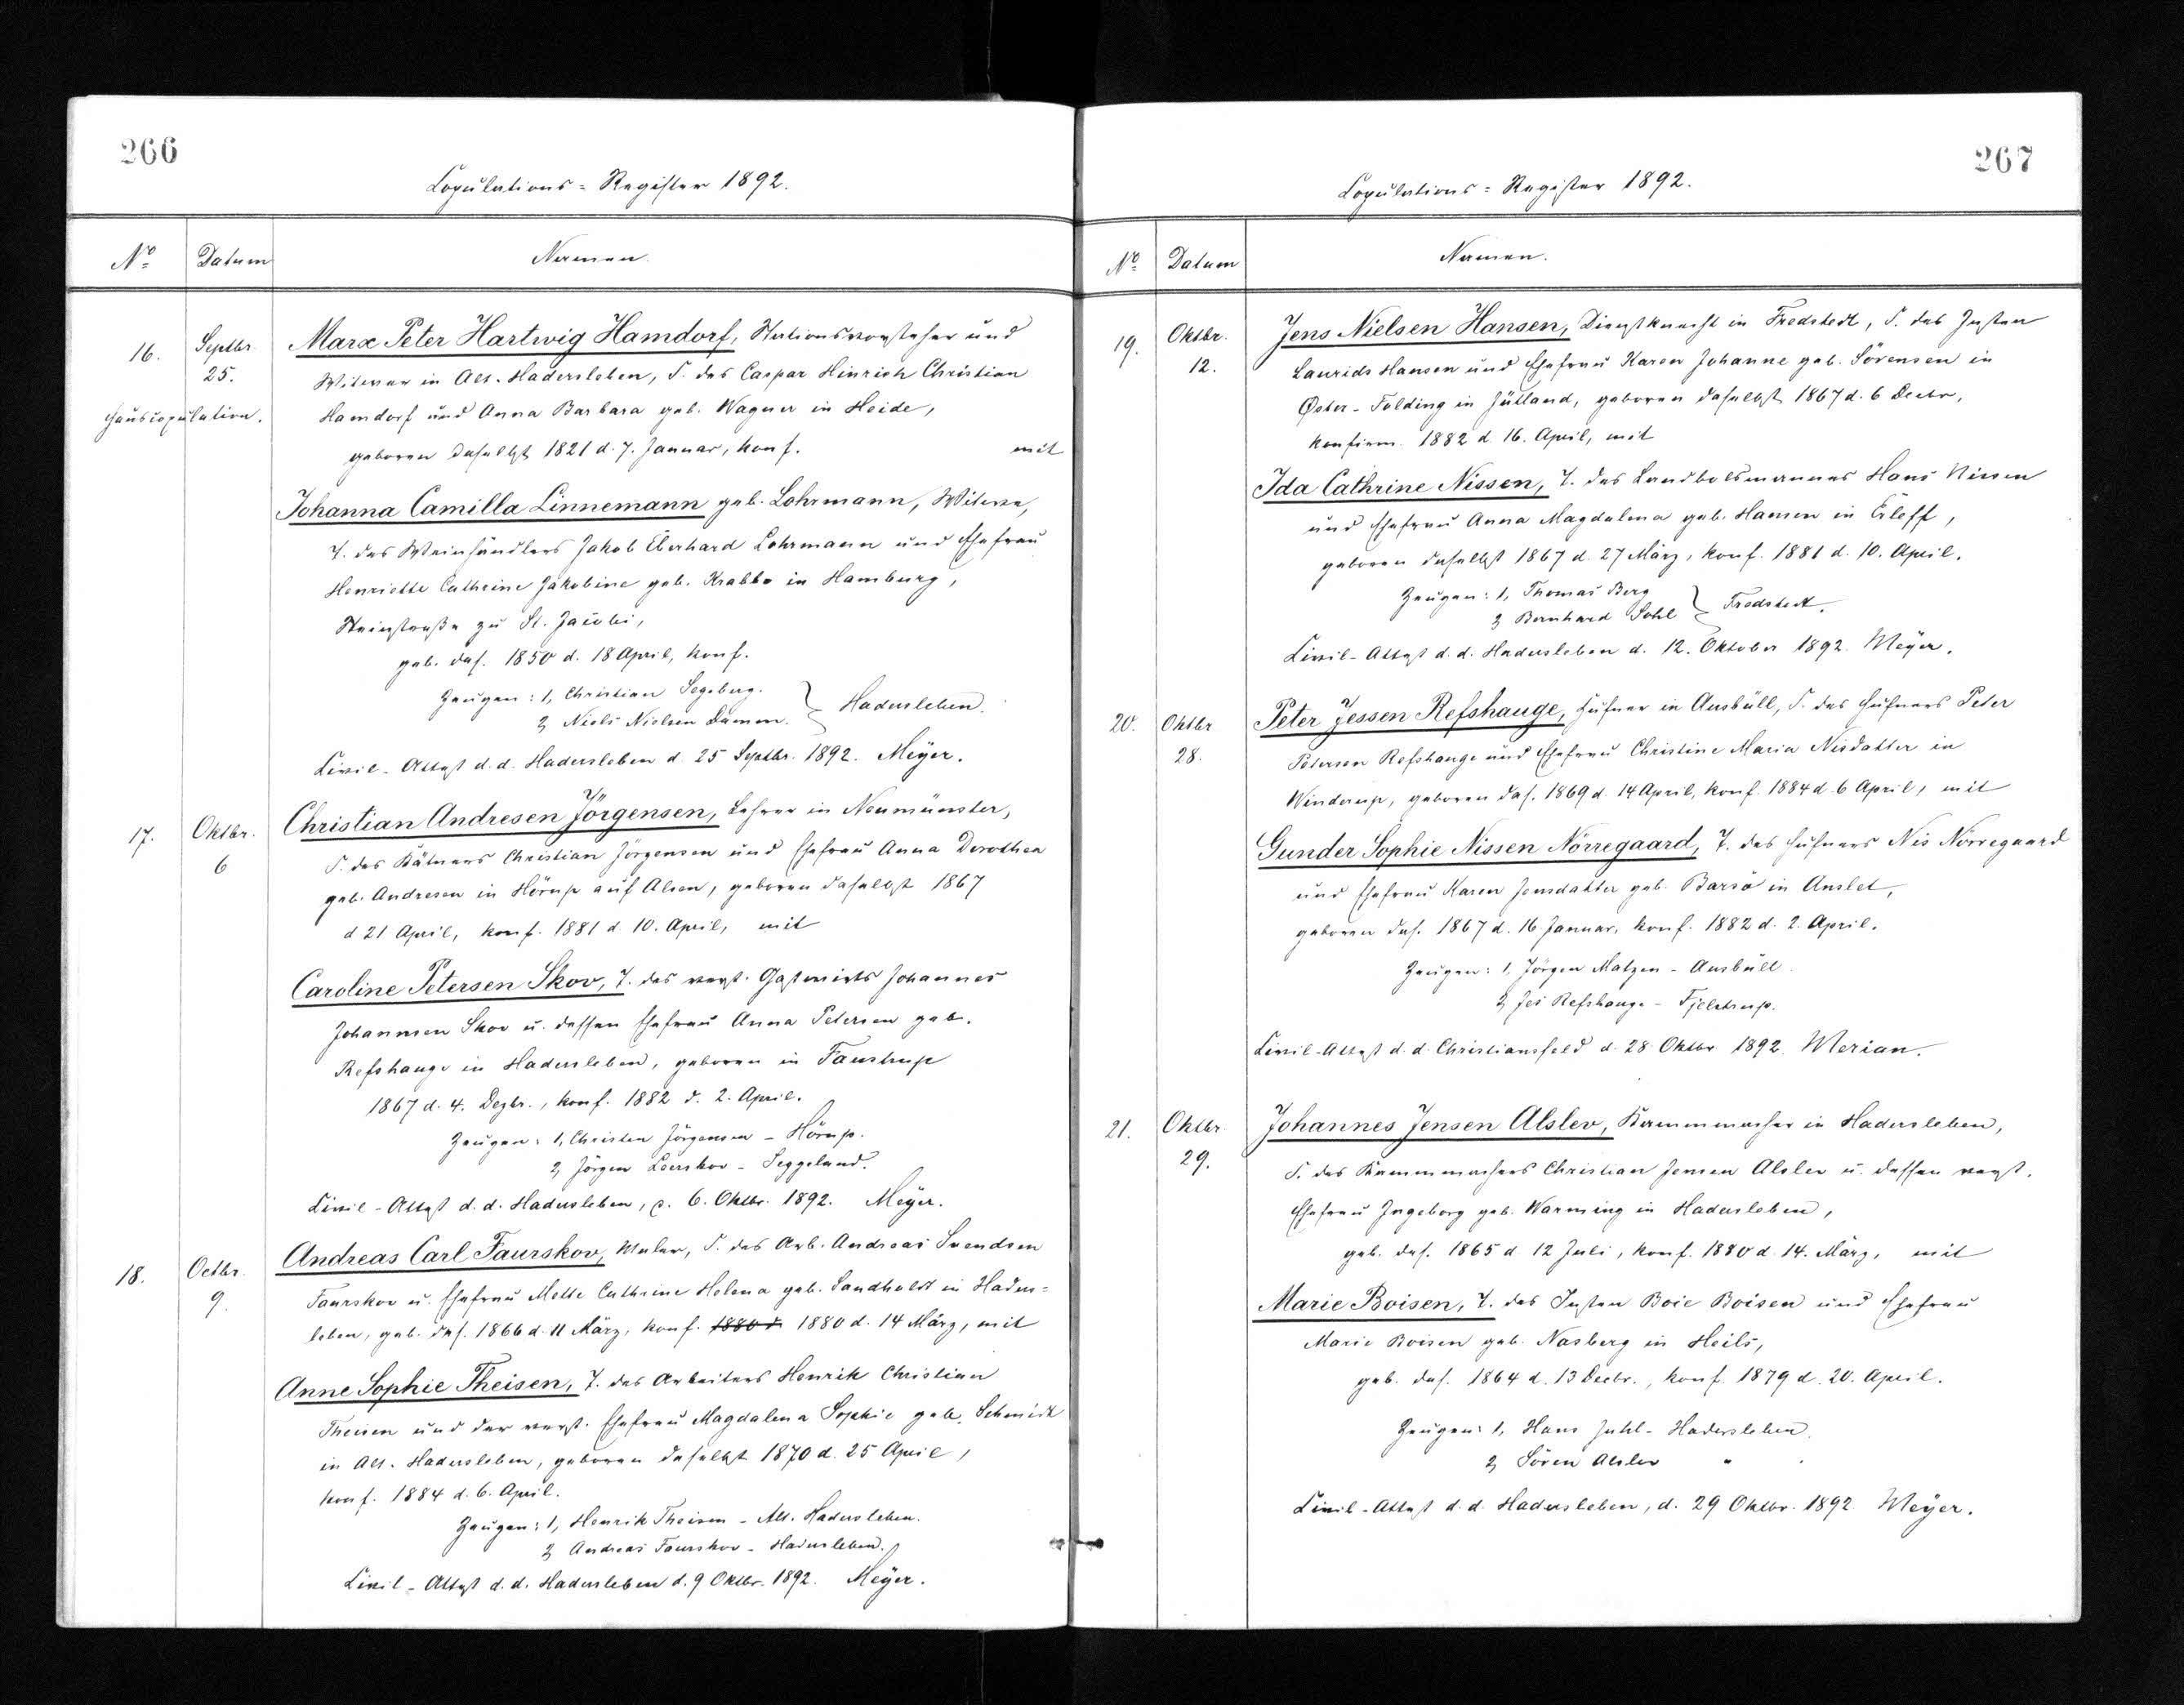 266
Copulations=Register 1892.
No Datum Namen.
16. Septbr. 25. Hauscopulation.
Marx Peter Hartwig Hamdorf, Stationsvorsteher und
Witwer in Alt-Hadersleben, S. des Caspar Hinrich Christian
Hamdorf und Anna Barbara geb. Wagner in Heide,
geboren daselbst 1821 d. 7. Januar, konf. mit
Johanna Camilla Linnemann geb. Lohrmann, Witwe,
T. des Weinhändlers Jakob Eberhard Lohrmann und Ehefrau
Henriette Cathrine Jakobine geb. Krabbe in Hamburg,
Steinstraße zu St. Jacobi,
geb. das. 1850 d. 18 April, konf.
Zeugen: 1, Christian Segeberg.
2, Niels Nielsen Damm. } Hadersleben.
Civil-Attest d. d. Hadersleben d. 25 Septbr. 1892. Meyer.
17. Oktbr. 6
Christian Andresen Jörgensen, Lehrer in Neumünster,
S. des Kätners Christian Jörgensen und Ehefrau Anna Dorothea
geb. Andresen in Hörup auf Alsen, geboren daselbst 1867
d 21 April, konf. 1881 d. 10. April, mit
Caroline Petersen Skov, T. des verst. Gastwirts Johannes
Johannsen Skov u. dessen Ehefrau Anna Petersen geb.
Refshauge in Hadersleben, geboren in Faustrup
1867 d. 4. Dezbr., konf. 1882 d. 2. April.
Zeugen: 1, Christen Jörgensen - Hörup.
2, Jörgen Leerskov - Seggelund.
Civil-Attest d. d. Hadersleben, d. 6. Oktbr. 1892. Meyer.
18. Octbr. 9.
Andreas Carl Faurskov, Maler, S. des Arb. Andreas Svendsen
Faurskov u. Ehefrau Mette Cathrine Helena geb. Sandholdt in Haders=
leben, geb. das. 1866 d. 11 März, konf. 1880 d. 1880 d. 14 März, mit
Anne Sophie Theisen, T. des Arbeiters Henrik Christian
Theisen und der verst. Ehefrau Magdalena Sophie geb. Schmidt
in Alt-Hadersleben, geboren daselbst 1870 d. 25 April,
konf. 1884 d. 6. April.
Zeugen: 1, Henrik Theisen - Alt. Hadersleben.
2, Andreas Faurskov - Hadersleben.
Civil-Attest d. d. Hadersleben d. 9 Oktbr. 1892. Meyer.
267
Copulations=Register 1892.
No Datum Namen.
19. Oktbr. 12.
Jens Nielsen Hansen, Dienstknecht in Fredstedt, S. des Insten
Laurids Hansen und Ehefrau Karen Johanne geb. Sörensen in
Øster-Folding in Jütland, geboren daselbst 1867 d. 6 Decbr,
konfirm. 1882 d. 16. April, mit
Ida Cathrine Nissen, T. des Landbolsmannes Hans Nissen
und Ehefrau Anna Magdalena geb. Hansen in Erleff,
geboren daselbst 1867 d. 27 März, konf. 1881 d. 10. April.
Zeugen: 1, Thomas Berg
2, Bernhard Sohl } Fredstedt.
Civil-Attest d. d. Hadersleben d. 12. Oktober 1892. Meyer.
20. Oktbr 28.
Peter Jessen Refshauge, Hufner in Ausbüll, S. des Hufners Peter
Petersen Refshauge und Ehefrau Christine Maria Nisdatter in
Winderup, geboren das. 1869 d. 14 April, konf. 1884 d. 6 April, mit
Gunder Sophie Nissen Nörregaard, T. des Hufners Nis Nörregaard
und Ehefrau Karen Jensdatter geb. Barsö in Anslet,
geboren das. 1867 d. 16 Januar, konf. 1882 d. 2. April.
Zeugen: 1, Jörgen Matzen - Ausbüll.
2, Jes Refshauge - Fjelstrup.
Civil-Attest d. d. Christiansfeld d. 28 Oktbr 1892. Merian.
21. Oktbr. 29.
Johannes Jensen Alslev, Kammmacher in Hadersleben,
S. des Kammmachers Christian Jensen Alslev u. dessen verst.
Ehefrau Ingeborg geb. Warming in Hadersleben,
geb. das. 1865 d 12 Juli, konf. 1880 d. 14. März, mit
Marie Boisen, T. des Insten Boie Boisen und Ehefrau
Marie Boisen geb. Nasberg in Heils,
geb. das. 1864 d. 13 Decbr., konf. 1879 d. 20. April.
Zeugen: 1, Hans Juhl - Hadersleben.
2, Sören Alslev "
Civil-Attest d. d. Hadersleben, d. 29 Oktbr. 1892 Meyer.